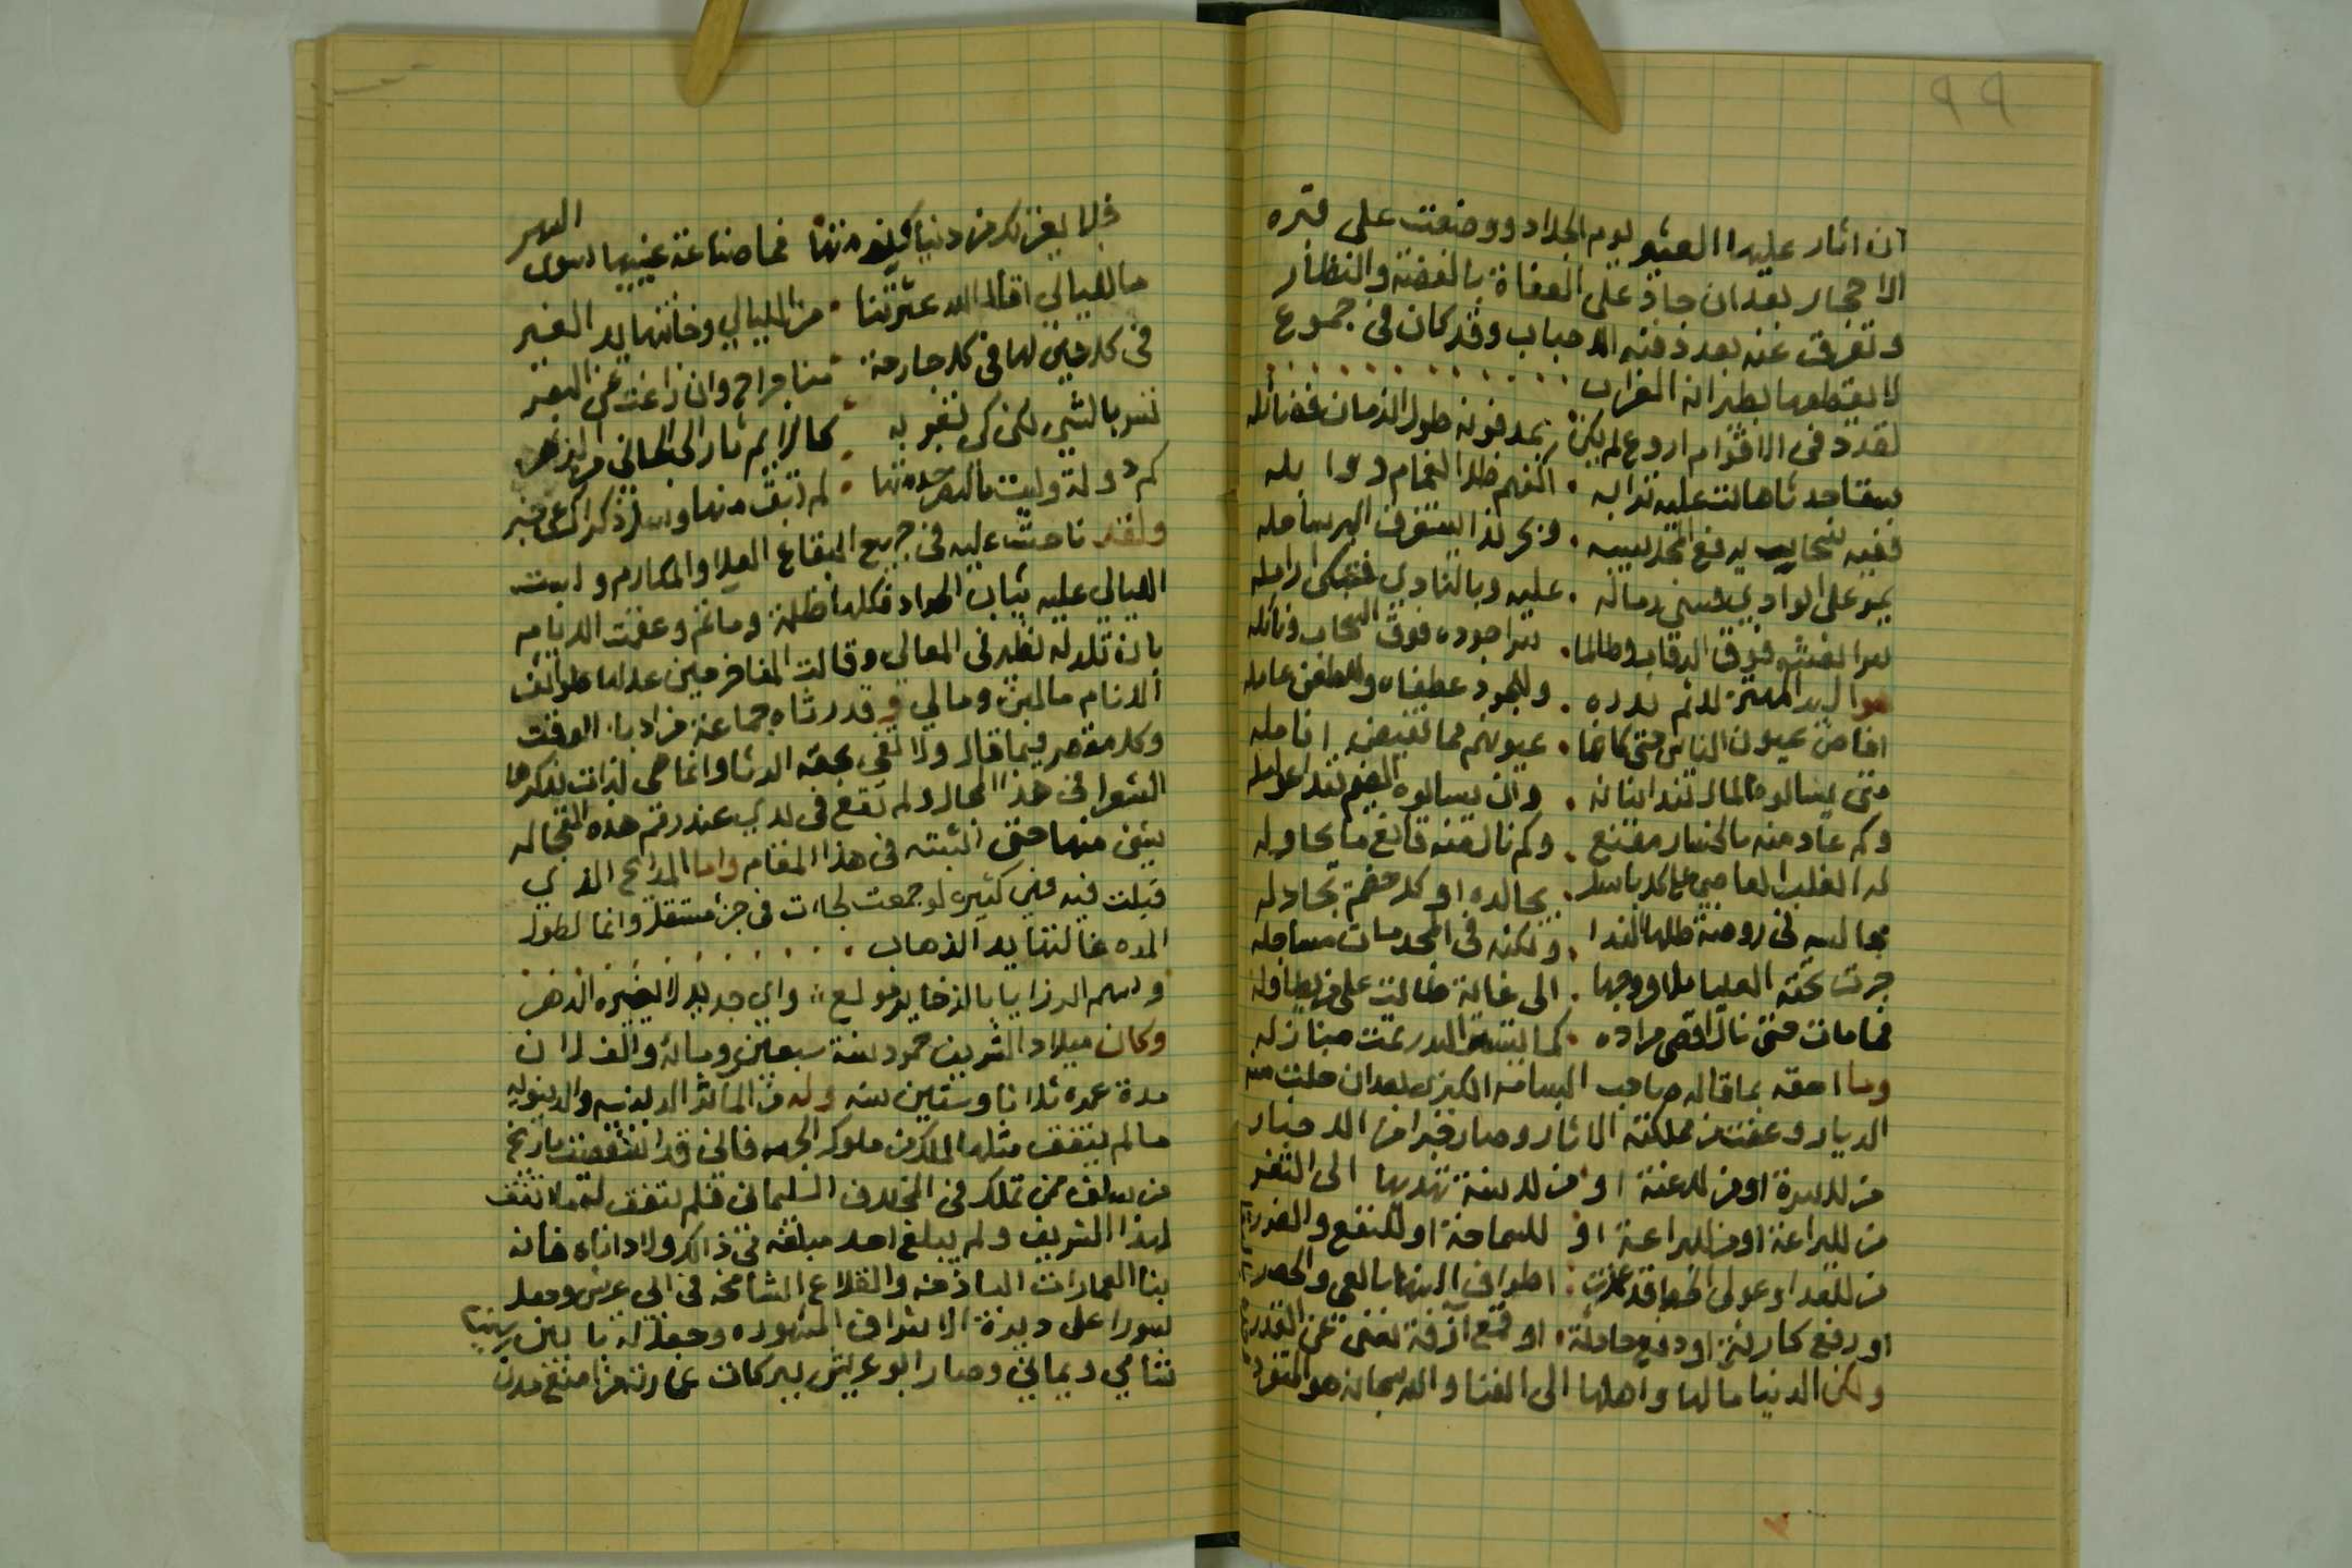 ٩٩
ان اثار عليها العثير يوم الجلاد ووضعت على قبره
الاحجار بعد ان جاد على العفاة بالفضة والنظار
وتفرقت عنه بعد دفنه الاحباب وقد كان في جموع
لا يقطعها بطيرانه الغراب
لقد دفن الاقوام اروع لم يكن بمدفونه طول الزمان فضائله
سقا جدثا هالت عليه ترابه اكفهم طل الغمام ووابله
ففيه سحاب يرفع المحل سيبه وبحر ندا يستغرق البر ساحله
يمر على الوادي فتثني رماله عليه وبالنادي فتبكي ارامله
سرا نعشه فوق الرقاب وطالما سرا جوده فوق السحاب ونائله
افاض عيون الناس حتى كانما عيونهم مما تفيض انامله
متى يسالوه المال تندا بنانه وان يسالوه الضيم تندا عوامله
وكم عاد منه بالخسار مقنع وكم نال منه قانع ما يحاوله
له الغلب القاضي على كل باسل يجالده او كل خصم يجادله
مجالسه في روضة طلها الندا ولكنه في المجد مات مساجله
جرت تحته العليا ملا فروجها الى غاية طالت على من يطاوله
فما مات حتى نال اقصى مراده كما يستسر البدر تمت منازله
وما احقه بما قاله صاحب البسامه الكبرى بعد ان خلت منه
الديار وعفت من مملكته الاثار وصار خبرا من الاخبار
من للاسرة او من للاعنة او من للاسنة تهديها الى الثغر
من للبراعة او من لليراعة او للسماحة او للنفع والضرر
او رفع كارثة او دفع حادثة او قمع آزفة تعي عن القدر
ولكن الدنيا مالها واهلها الى الفنا والله سبحانه هو المتفرد
فلا يغرنك من دنياك نومتها فما صناعة عينيها سوى السهر
ما لليالي اقال الله عثرتنا من الليالي وخانتها يد الغير
في كل حين لها في كل جارحة منا جراح وان زاغت عن البصر
تسر بالشي لكن كي تغر به كالايم ثار الى الجاني من الزهر
كم دولة وليت بالنصر خدمتها لم تبق منها وسل ذكراك عن خبر
ولقد ناحت عليه في جميع البقاع العلا والمكارم ولبست
الليالي عليه ثياب الحداد فكلها ظلمة ومآتم وعقمت الايام
بان تلد له نظير في المعالي وقالت المفاخر حين عدلها طوائف
الانام ما لمين وما لي وقد رثاه جماعة من ادبا الوقت
وكل مقصر فيما قال ولا تفي بحقه الرثا وانما هي لذات تذكرها
الشعرا في هذا المجال ولم تقع في يدي عند رقم هذه العجاله
شي منها حتى اثبته في هذا المقام واما المدائح الذي
قيلت فيه فهي كثيره لو جمعت لجات في جزء مستقل وانما لطول
المده غالتها يد الذهاب
وسهم الرزايا بالذخاير مولع واي جديد لا يغيره الدهر
وكان ميلاد الشريف حمود سنة سبعين ومائة والف وان
مدة عمره ثلاثا وستين سنه وله من الماثر الدينيه والدنيويه
ما لم يتفق مثلها لملك من ملوك الجهه فاني قد استقصيت تاريخ
من سلف ممن تملك في المخلاف السليماني فلم يتفق لهم ما اتفق
لهذا الشريف ولم يبلغ احد مبلغه في ذلك ولا داناه فانه
بنا العمارات الباذخه والقلاع الشامخه في ابي عريش وجعل
سورا على ديرة الاشراف المشهوره وجعل له بابين
شامي ويماني وصار ابو عريش ببركات عمارته من امنع مدن